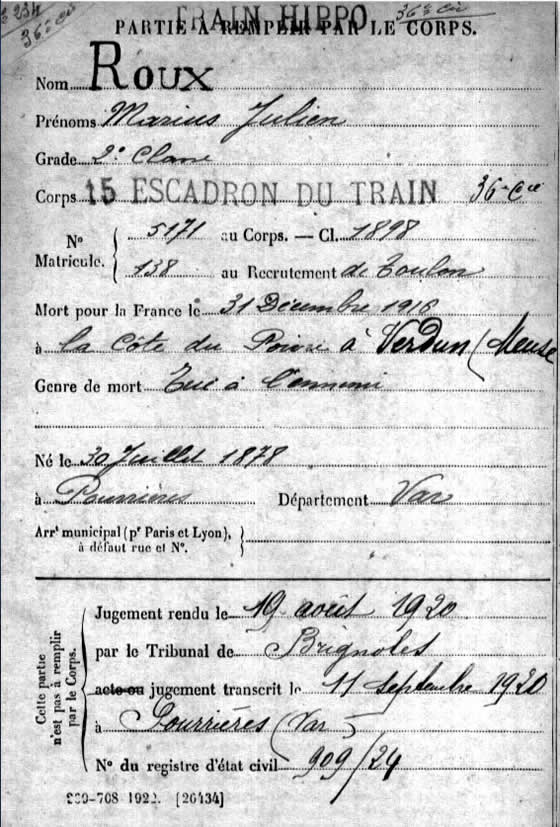 TRAIN HIPPO 36e Cie
234
36e Cie
PARTIE À REMPLIR PAR LE CORPS.
Nom ROUX
Prénoms Marius Julien
Grade 2e Classe
Corps 15 ESCADRON DU TRAIN 36e Cie
No Matricule. { 5171 au Corps. — Cl. 1898
138 au Recrutement de Toulon
Mort pour la France le 31 Décembre 1916
à la Côte du Poivre à Verdun (Meuse
Genre de mort Tué à l'ennemi
Né le 30 Juillet 1878
à Pourrières Département Var
Arrt municipal (pr Paris et Lyon), }
à défaut rue et No.
Cette partie n'est pas à remplir par le Corps.
Jugement rendu le 19 août 1920
par le Tribunal de Brignoles
acte ou jugement transcrit le 11 Septembre 1920
à Pourrières (Var)
No du registre d'état civil 909/24
[26434]